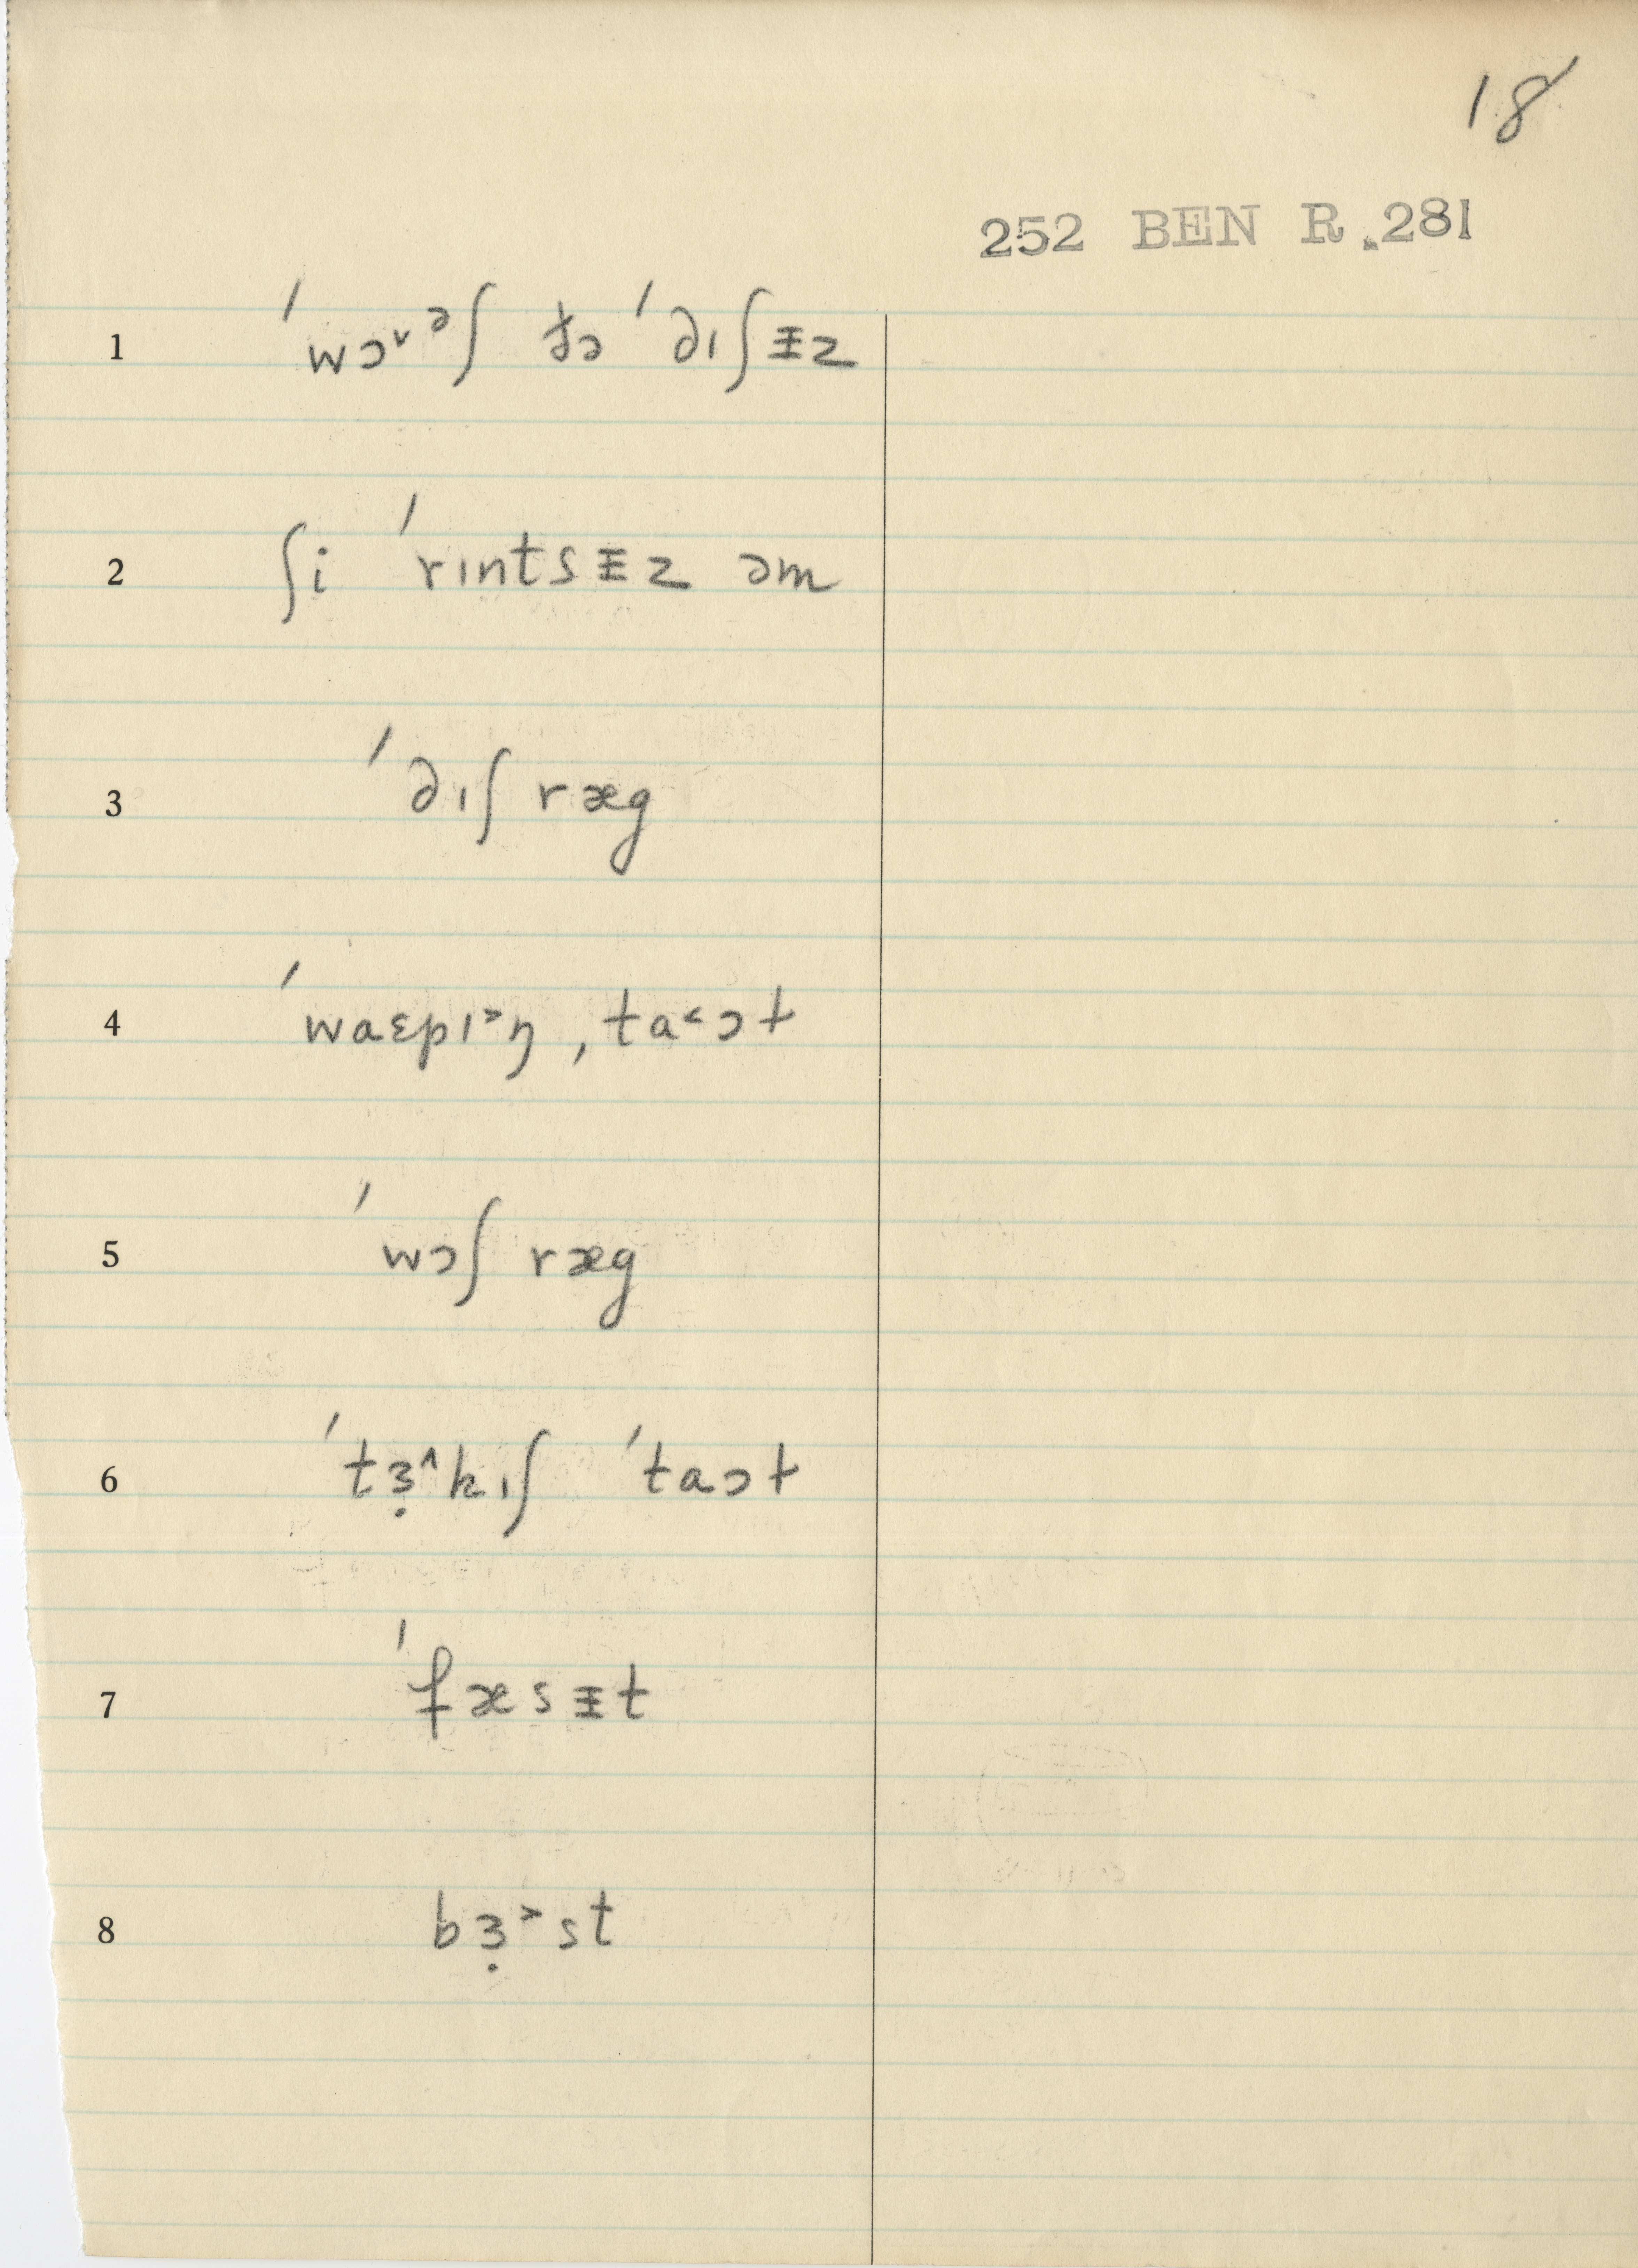 18
252 BEN R.281
1 ˈwɔ˅ᵊʃ ðə ˈdɪʃɪ̵z
2 ʃi ˈrɪntsɪ̵z əm
3 ˈdɪʃ ræg
4 ˈwaɛpɪ˃ŋ ˌta˂ɔt
5 ˈwɔʃ ræg
6 ˈtɜ̣˄kɪʃ ˈtaɔt
7 ˈfæsɪ̵t
8 bɜ̣˃st